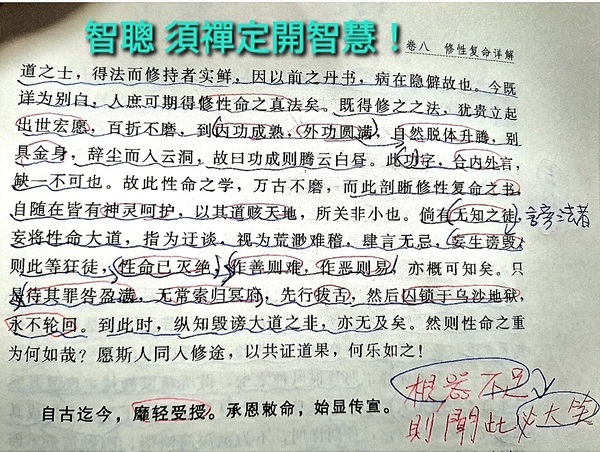 智聰 須禪定開智慧！
卷八 修性复命详解
道之士，得法而修持者实鲜，因以前之丹书，病在隐僻故也。今既
详为别白，人庶可期得修性命之真法矣。既得修之之法，犹贵立起
出世宏愿，百折不磨，到内功成熟，外功圆满，自然脱体升腾，别
具金身，辞尘而人云洞，故曰功成则腾云白昼。此功字，合内外言，
缺一不可也。故此性命之学，万古不磨，而此剖晰修性复命之书，
自随在皆有神灵呵护，以其道赅天地，所关非小也。倘有无知之徒，
謗法者
妄将性命大道，指为迂谈，视为荒渺难稽，肆言无忌，妄生谤毁，
则此等狂徒，性命已灭绝，作善则难，作恶则易，亦概可知矣。只
待其罪咎盈满，无常索归冥府，先行拔舌，然后囚锁于乌沙地狱，
永不轮回。到此时，纵知毁谤大道之非，亦无及矣。然则性命之重
为何如哉？愿斯人同人修途，以共证道果，何乐如之！
根器不足
自古迄今，魔轻受授。承恩敕命，始显传宣。
則聞此必大笑